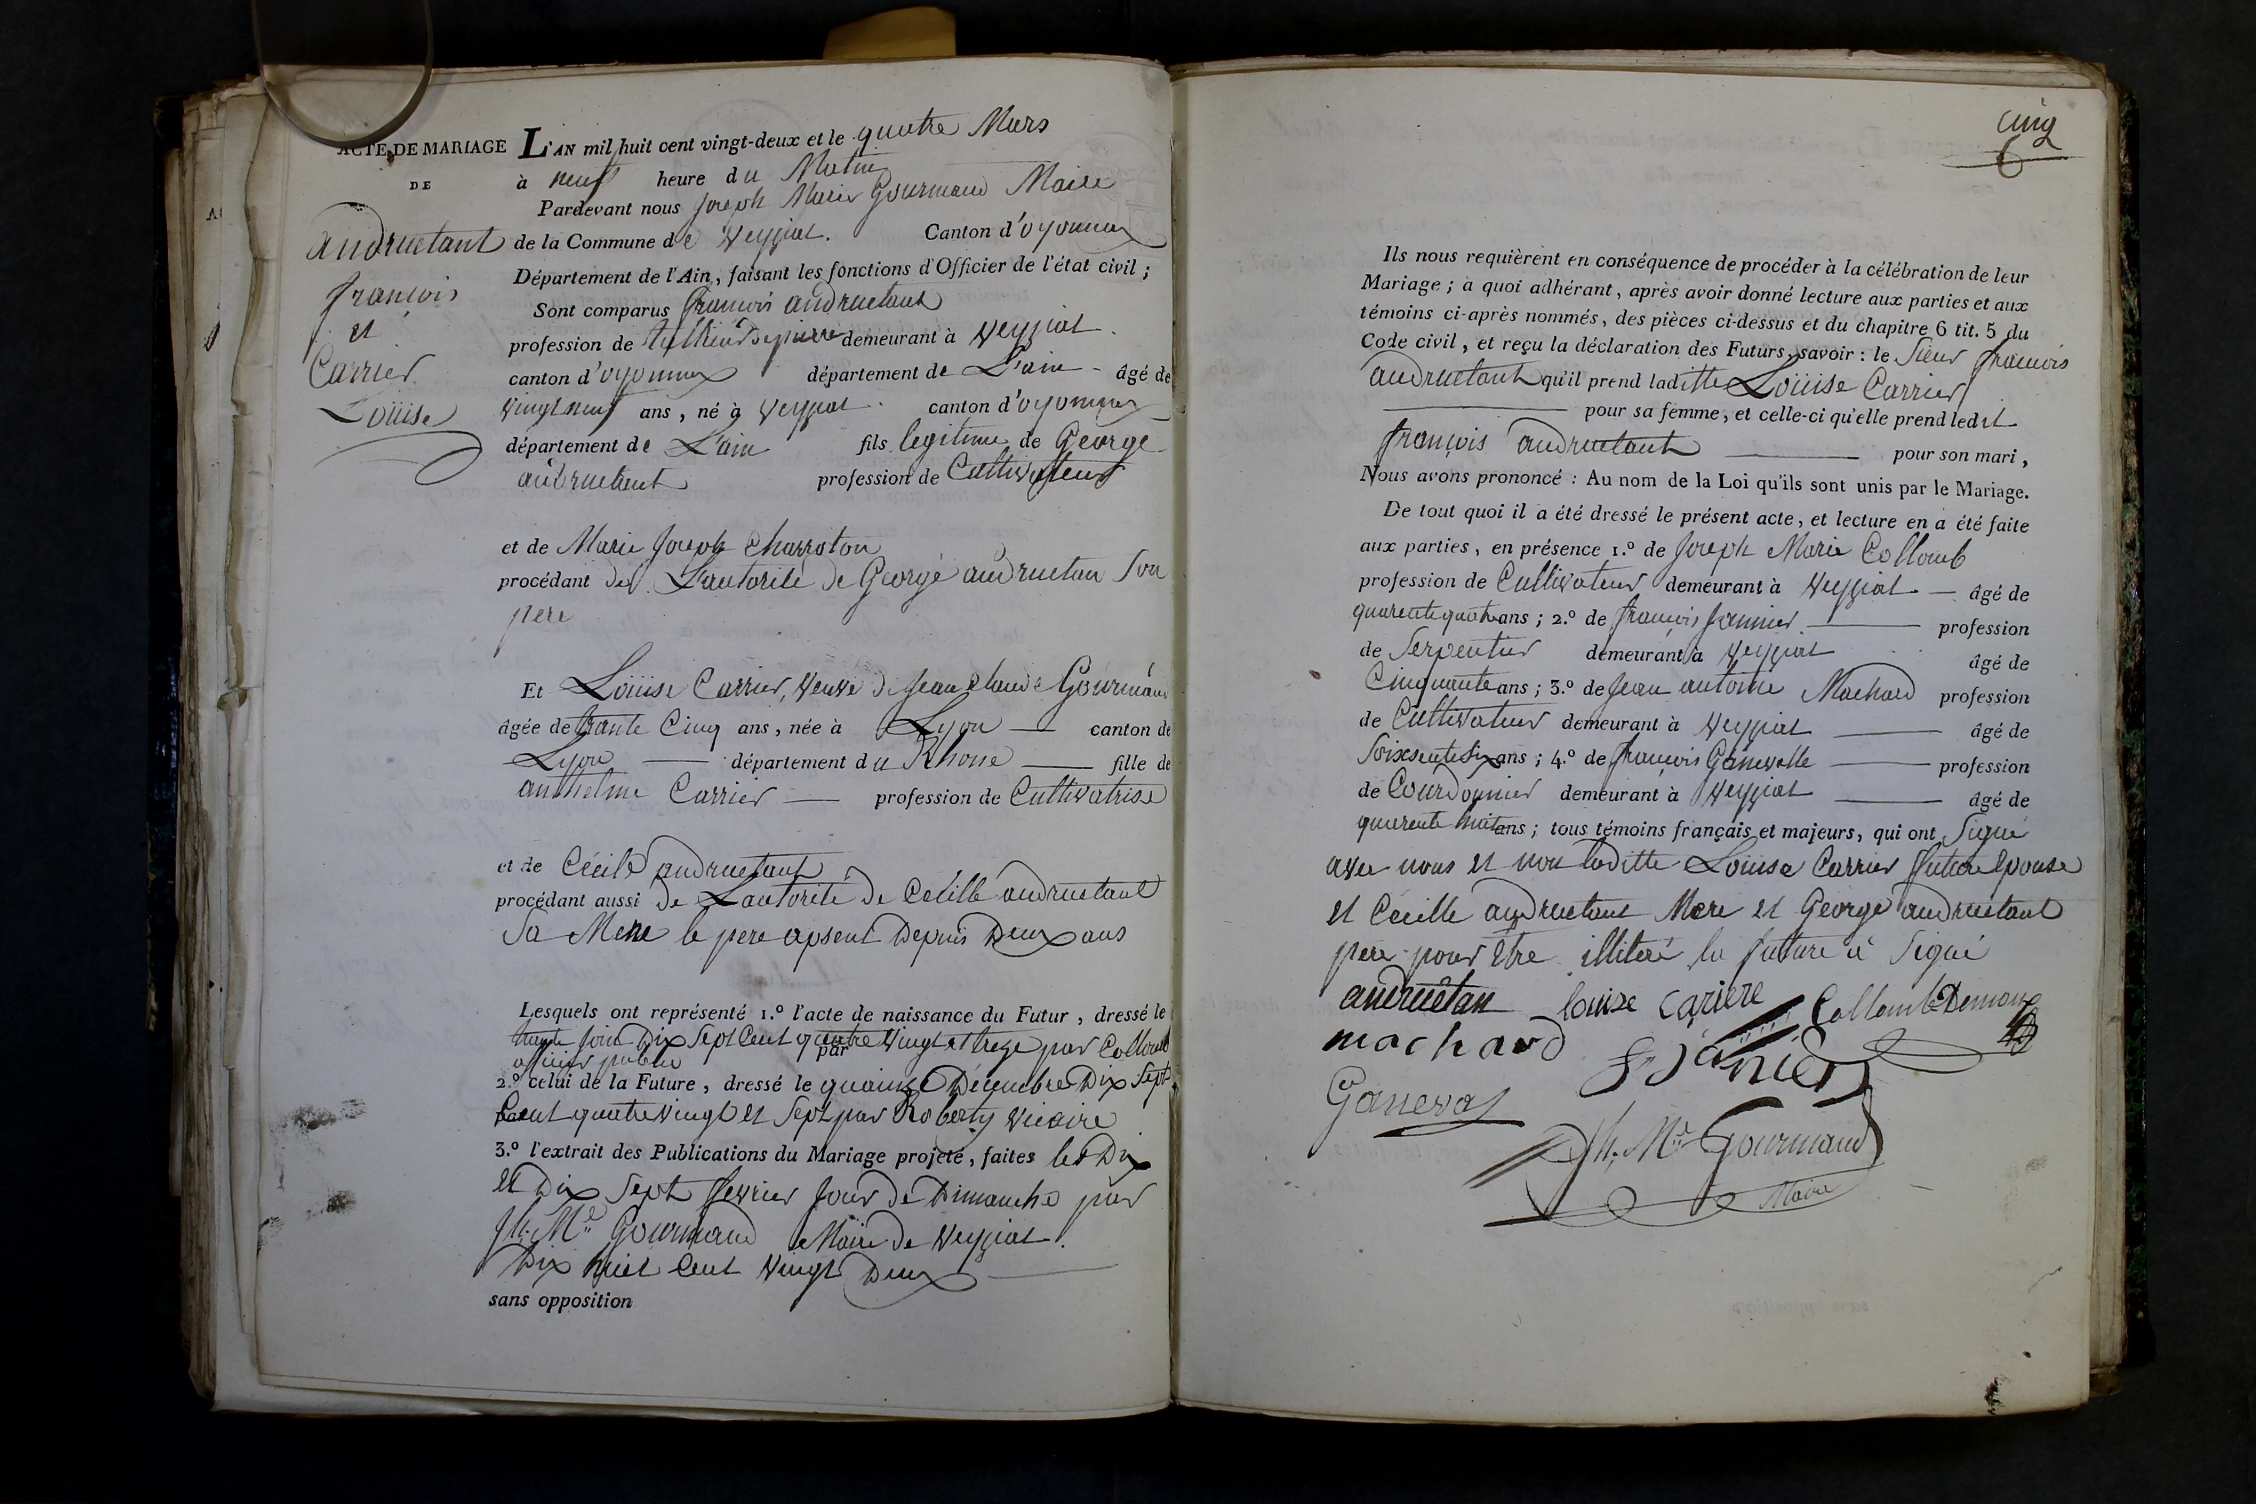 ACTE DE MARIAGE
DE
andruetant
françois
et
Carrier
Loüise
L'AN mil huit cent vingt-deux et le quatre Mars
à neuf heure du Matin
Pardevant nous Joseph Marie Gourmand Maire
de la Commune de Veyziat. Canton d'oyonnax
Département de l'Ain, faisant les fonctions d'Officier de l'état civil;
Sont comparus françois andruetant
profession de tallieur de pierre demeurant à Veyziat
canton d'oyonnax département de L'ain âgé de
vingt neuf ans, né à Veyziat canton d'oyonnax
département de L'ain fils legitime de George
andruetant profession de Cultivateur
et de Marie Joseph Charroton
procédant de L'autorité de George andruetan Son
pere
Et Loüise Carrier, Veuve de Jean Claude Gourmand
âgée de trante Cinq ans, née à Lyon canton de
Lyon département du Rhone fille de
anthelme Carrier profession de Cultivatrise
et de Cécile andruetant
procédant aussi de L'autorité de Cécille andruetant
Sa Mere le pere apsent Depuis Deux ans
Lesquels ont représenté 1.º l'acte de naissance du Futur, dressé le
trante Juin Dix Sept Cent quatre Vingt et treze par Collomb
officier public par
2.º celui de la Future, dressé le quainze Décembre Dix Sept
Cent quatre vingt et Sept par Roberty Vicaire
3.º l'extrait des Publications du Mariage projeté, faites les Dix
et Dix Sept fevrier Jour de Dimanche par
Jh. Mie Gourmand Maire de Veyziat
Dix huit Cent Vingt Deux
sans opposition
cinq
Ils nous requièrent en conséquence de procéder à la célébration de leur
Mariage; à quoi adhérant, après avoir donné lecture aux parties et aux
témoins ci-après nommés, des pièces ci-dessus et du chapitre 6 tit. 5 du
Code civil, et reçu la déclaration des Futurs, savoir: le Sieur francois
andruetant qu'il prend laditte Loüise Carrier
pour sa femme, et celle-ci qu'elle prend ledit
françois andruetant pour son mari,
Nous avons prononcé: Au nom de la Loi qu'ils sont unis par le Mariage.
De tout quoi il a été dressé le présent acte, et lecture en a été faite
aux parties, en présence 1.º de Joseph Marie Collomb
profession de Cultivateur demeurant à Veyziat âgé de
quarente quatre ans; 2.º de françois Jannier profession
de Serpentier demeurant à Veyziat âgé de
Cinquante ans; 3.º de Jean antoine Machard profession
de Cultivateur demeurant à Veyziat âgé de
Soixsente Six ans; 4.º de françois Ganevalle profession
de Courdonnier demeurant à Veyziat âgé de
quarente huit ans; tous témoins français et majeurs, qui ont Signé
avec nous et non laditte Louise Carrier future Epouse
et Cécille andruetant Mere et George andruetant
pere pour être illiteré la future a Signé
andruêtan louise cariere Collomb
machard
Ganeval
Jh. Mie Gourmand
Maire